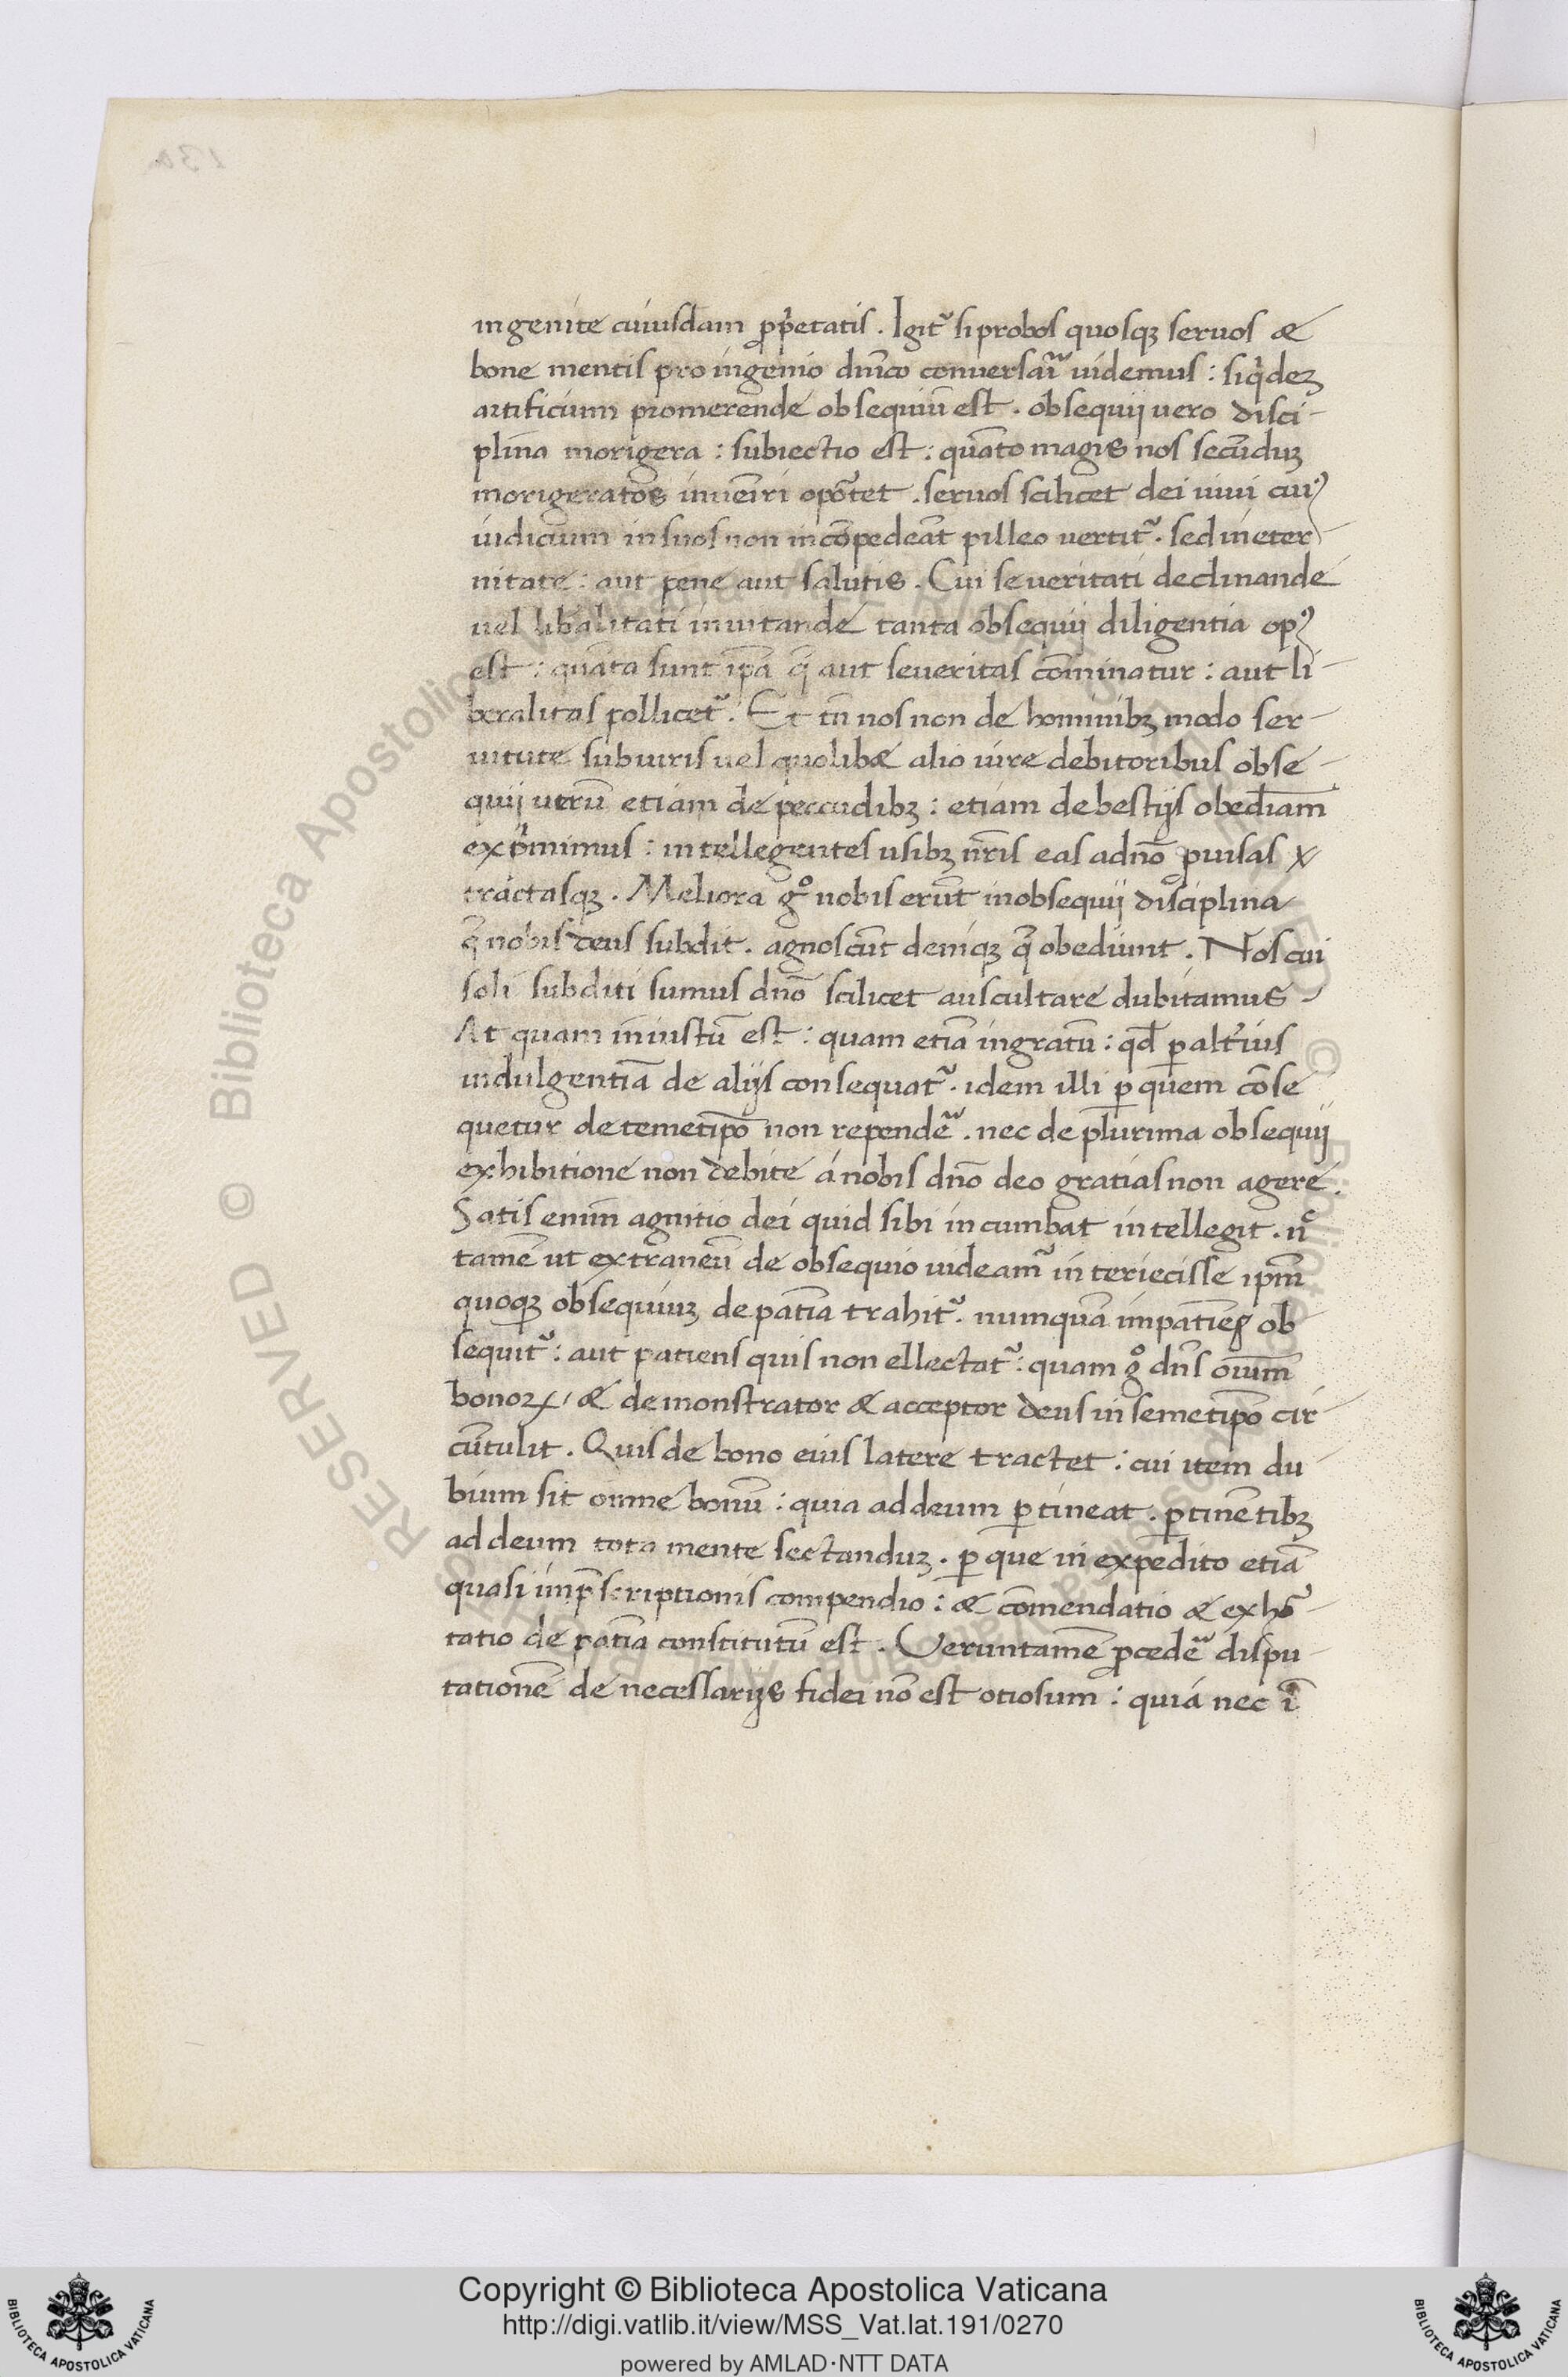 ingenite cuiusdam ꝓp̾etatis . Igit᷑ si probos quosqꝫ seruos &
bone mentis pro ingenio dn̄ico conuersari᷑ uidemus : siqͥdeꝫ
artificium promerende obsequiū est . obsequij uero disci-
plīna morigera : subiectio est : quāto magis nos secūduꝫ
morigeratos inueīri opoꝛtet . seruos scilicet dei uiui cuiꝰ
iudicium in suos non in cōpedeāt pilleo uertit᷑ . sed in eter
nitate : aut pene aut salutis . Cui seueritati declinande
uel libalitati inuitande tanta obsequij diligentia opꝰ
est : quāta sunt ip̄a q̄ aut seueritas cōminatur : aut li-
beralitas pollicet᷑ . Et tn̄ nos non de hominibꝫ modo ser-
uitute subuiris uel quolib& alio iure debitoribus obse-
quij uerū etiam de peccudibꝫ : etiam de bestijs obedīam
expͥmimus : intellegentes usibꝫ nr̄is eas adnō ꝓuisas
tractasqꝫ . Meliora gͦ nobis erūt in obsequij disciplina
q̄ nobis deus subdit . agnoscūt deniqꝫ q̄ obediunt . Nos cui
soli subditi sumus dn̄o scilicet auscultare dubitamus .
At quam iniustū est : quam etiā ingratū : qd̄ ꝑ alt̾ius
indulgentiā de alijs consequat᷑ . idem illi ꝑ quem cōse
quetur de temetip̄o non repende᷑ . nec de plurima obsequij
exhibitione non debite á nobis dn̄o deo gratias non agere .
Satis enim̄ agnitio dei quid sibi incumbat intellegit . nͨ
tamē ut extraneū de obsequio uideam᷑ interiecisse ip̄m
quoqꝫ obsequiuꝫ de patīa trahit᷑ . numquā impatiēs ob
sequit᷑ : aut patiens quis non ellectat᷑ : quam gͦ dn̄s oīum
bonoꝝ / & demonstrator & acceptor deus in semetip̄o cir-
cūtulit . Quis de bono eius latere tractet : cui item du
bium sit omne bonū : quia ad deum ꝑtineat . ꝑtinētibꝫ
ad deum tota mente sectanduꝫ . ꝑ que in expedito etiā
quasi in p̄scriptionis compendio : & cōmendatio & exho᷑-
tatio de patīa constitutū est . Veruntamē ꝓcede᷑ dispu-
tationē de necessarijs fidei nō est otiosum : quiá nec ī
Copyright © Biblioteca Apostolica Vaticana
http://digi.vatlib.it/view/MSS_Vat.lat.191/0270
powered by AMLAD·NTT DATA